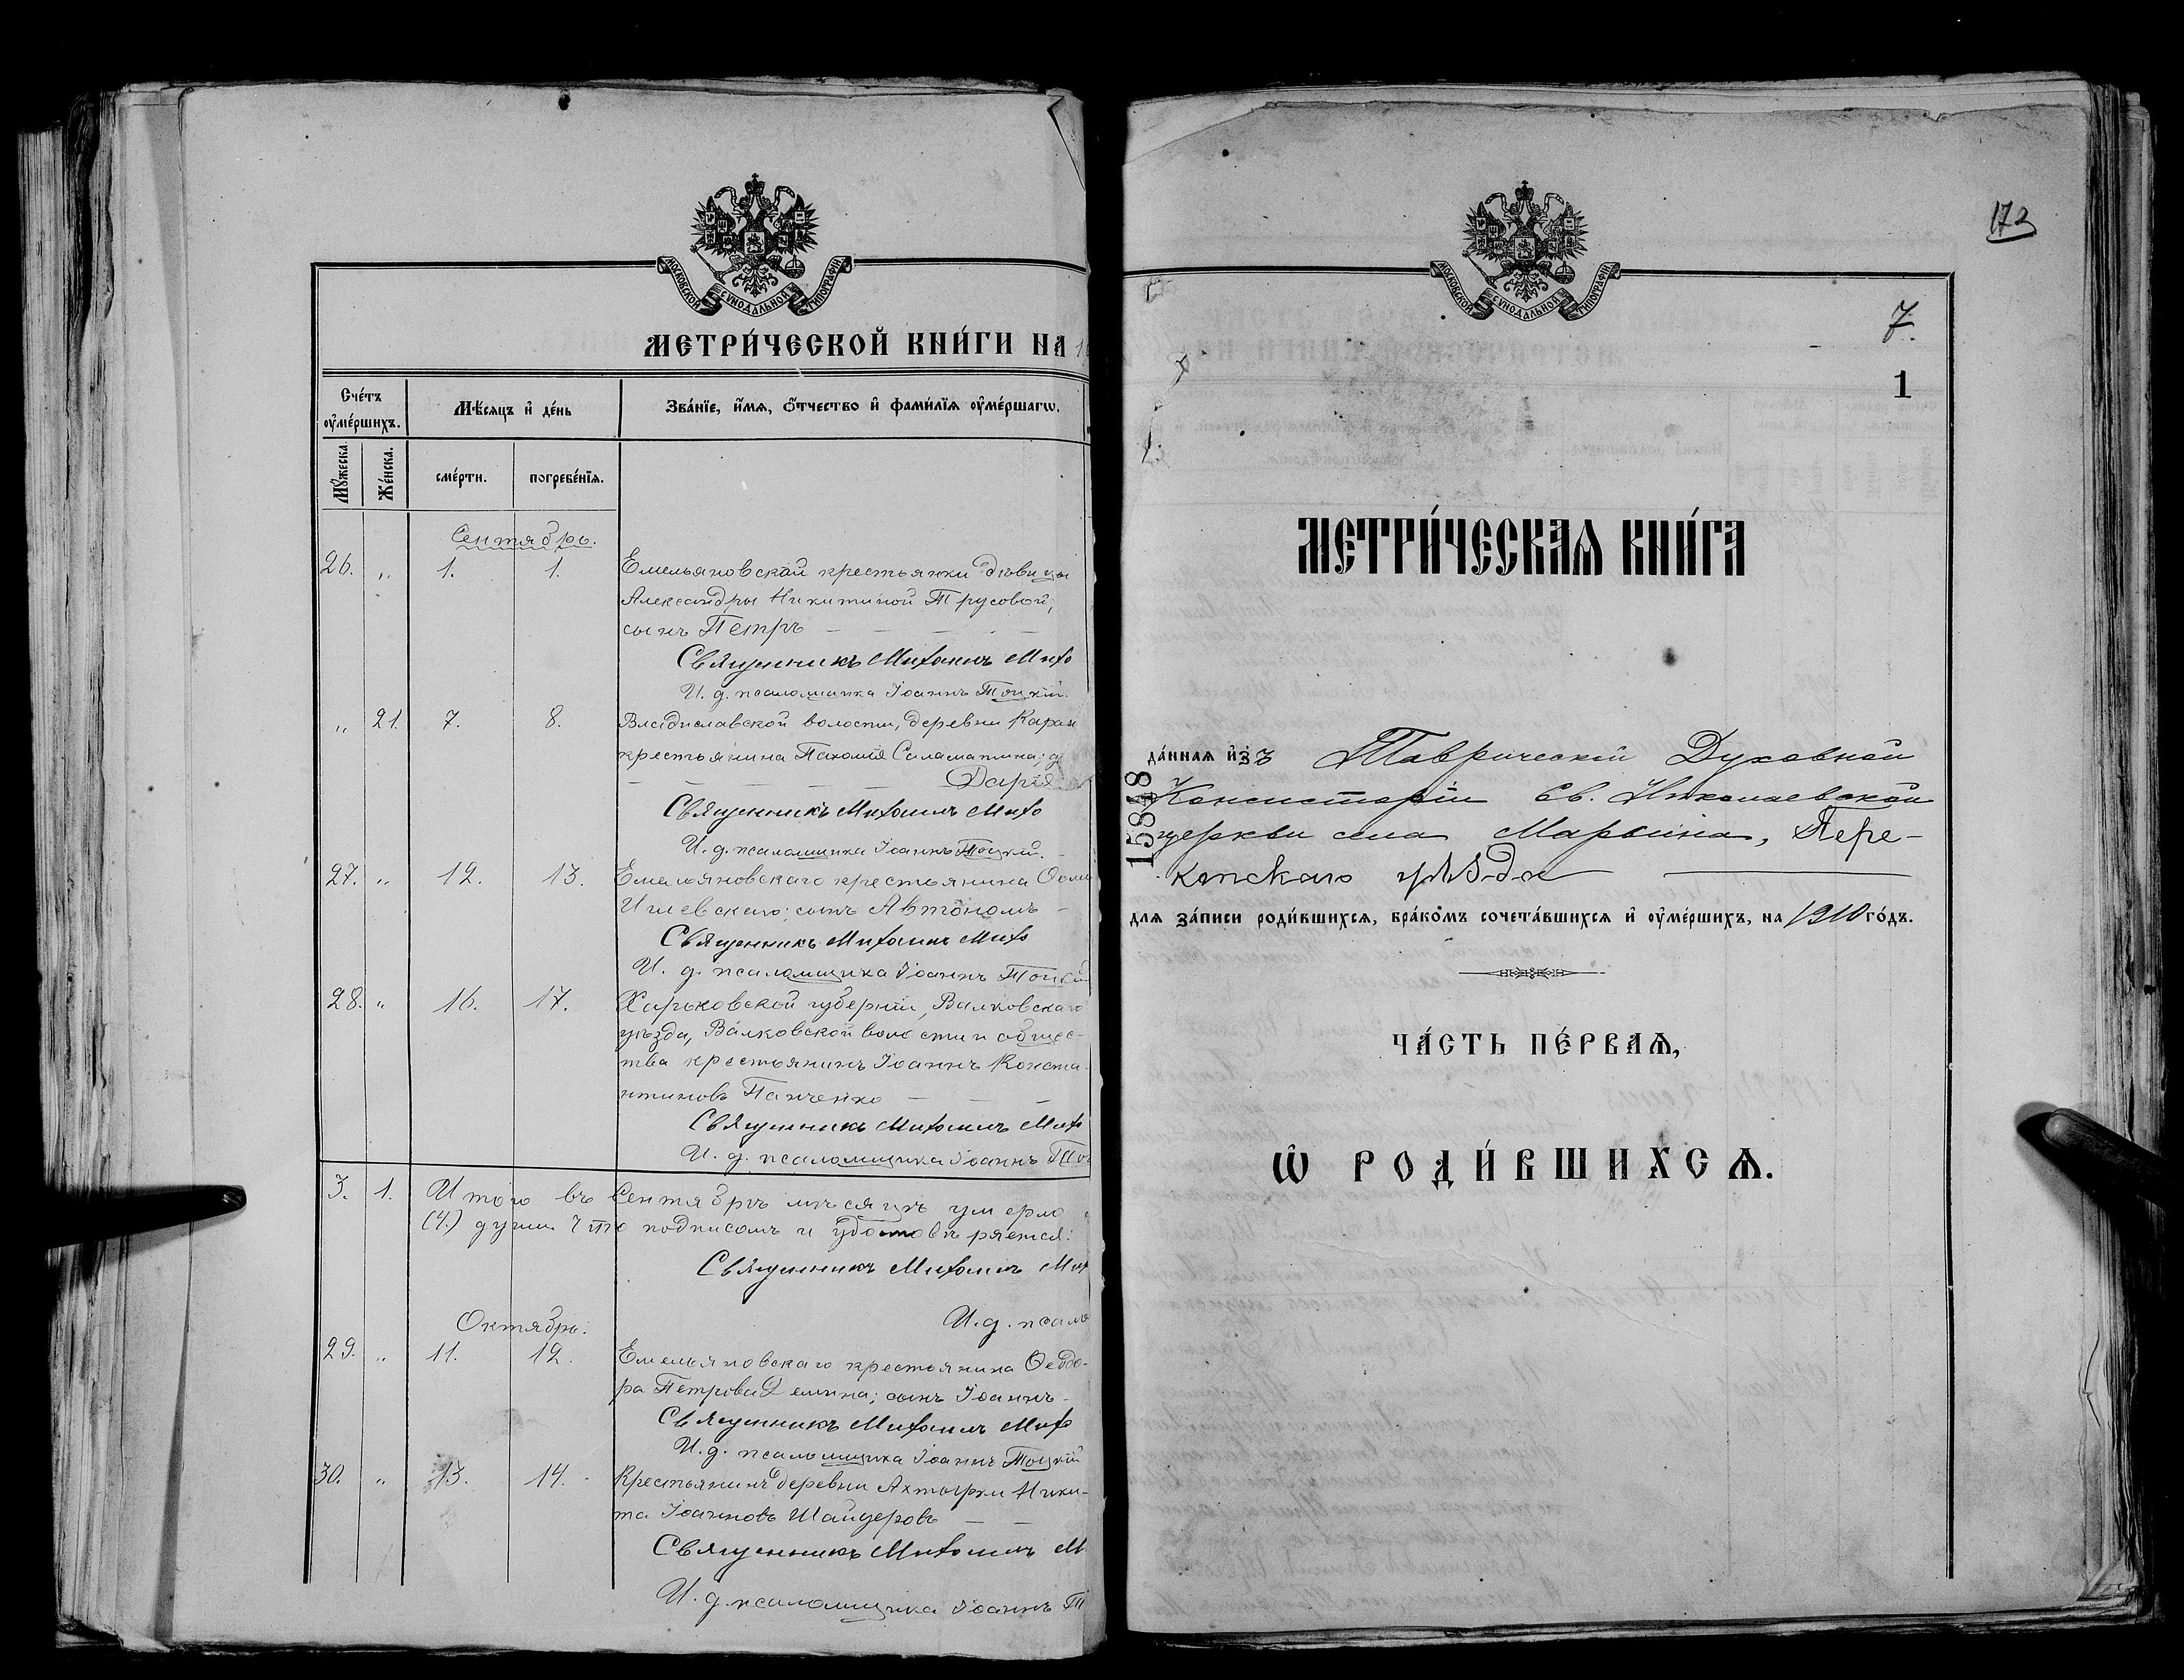 МОСКОВСКОЙ СѴНОДАЛЬНОЙ ТИПОГРАФІИ
МЕТРИ́ЧЕСКОЙ КНИ́ГИ НА
Сче́тъ оу҆ме́ршихъ.
Мѣ́сяцъ и҆ де́нь
Зва́нїе, и҆́мя, ѻ҆́тчество и҆ фами́лїя оу҆ме́ршагѡ.
Му́жеска.
Же́нска.
сме́рти.
погребе́нїя.
Сентябрь.
26. „ 1. 1. Емельяновской крестьянки дѣвицы
Александры Никитиной Трусовой;
сынъ Петръ
Священникъ Михаилъ Михо
И. д. псаломщика Іоаннъ Тоцкій.
„ 21. 7. 8. Владиславской волости, деревни Каран
крестьянина Пахомія Саламатина; д
Дарія
Священникъ Михаилъ Михо
И. д. псаломщика Іоаннъ Тоцкій.
27. „ 12. 13. Емельяновскаго крестьянина
сынъ Автономъ
Священникъ Михаилъ Михо
И. д. псаломщика Іоаннъ Тоцкій
28. „ 16. 17. Харьковской губерніи, Валковскаго
уѣзда, Валковской волости и общес-
тва крестьянинъ Іоаннъ Конста-
нтиновъ Панченко
Священникъ Михаилъ Михо
И. д. псаломщика Іоаннъ То
3. 1. Итого въ Сентябрѣ мѣсяцѣ умерло
(4.) души что подписомъ и удостовѣряется:
Священникъ Михаилъ Мих
И. д. псало
Октябрь.
29. „ 11. 12. Емельяновскаго крестьянина Ѳеодо-
ра Петрова Демина; сынъ Іоаннъ
Священникъ Михаилъ Михо
И. д. псаломщика Іоаннъ Тоцкій
30. „ 13. 14. Крестьянинъ деревни Ахтырки Ники-
та Іоанновъ Шандеровъ
Священникъ Михаилъ М
И. д. псаломщика Іоаннъ Т
172
МОСКОВСКОЙ СѴНОДАЛЬНОЙ ТИПОГРАФІИ
7.
1
МЕТРИ́ЧЕСКАѦ КНИ́ГА
да́нная и҆зъ Таврической Духовной
Консисторіи Св. Николаевской
церкви села Марьина, Пере-
копскаго уѣзда
15848
для за́писи роди́вшихся, бра́комъ сочета́вшихся и҆ оу҆ме́ршихъ, на 1910 го́дъ.
ЧА́СТЬ ПЕ́РВАѦ,
Ѡ҆ РОДИ́ВШИХСѦ.